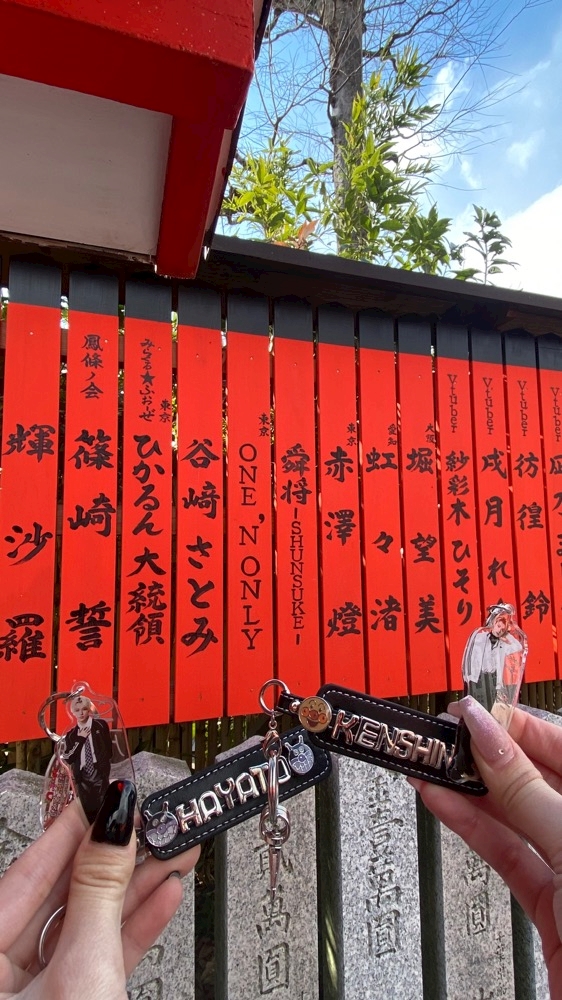 輝沙羅
鳳條ノ会
篠崎誓
みらくる★ふぉーぜ
東京
ひかるん大統領
谷﨑さとみ
東京
ONE'N'ONLY
舜将-SHUNSUKE-
東京
赤澤燈
愛知
虹々渚
大阪
堀望美
Vtuber
紗彩木ひそり
Vtuber
戌月れ
Vtuber
彷徨鈴
Vtuber
HAYATO
KENSHIN
貳萬圓
壹萬圓
萬圓